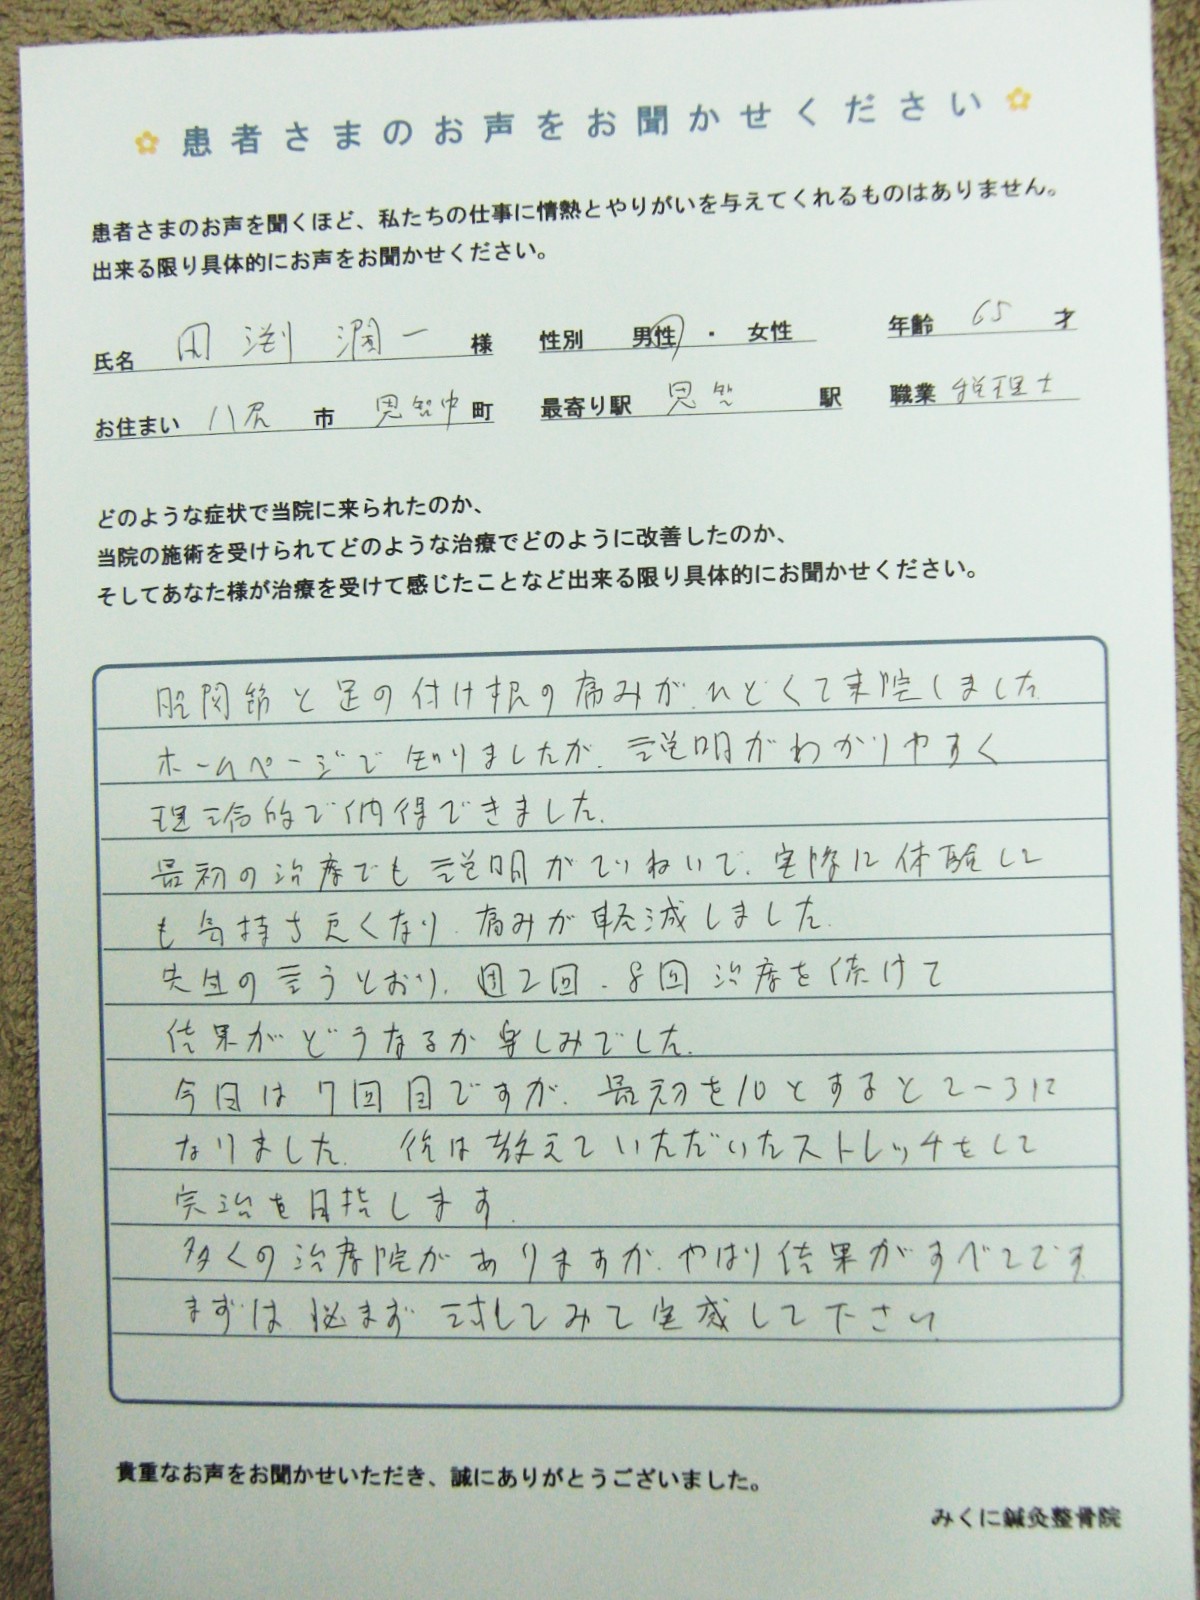 患者さまのお声をお聞かせください
患者さまのお声を聞くほど、私たちの仕事に情熱とやりがいを与えてくれるものはありません。
出来る限り具体的にお声をお聞かせください。
氏名 渕 潤一 様 性別 男性 ・ 女性 年齢 65 才
お住まい 八尾 市 恩智中 町 最寄り駅 恩智 駅 職業 税理士
どのような症状で当院に来られたのか、
当院の施術を受けられてどのような治療でどのように改善したのか、
そしてあなた様が治療を受けて感じたことなど出来る限り具体的にお聞かせください。
股関節と足の付け根の痛みが、ひどくて来院しました
ホームページで知りましたが、説明がわかりやすく
理論的で納得できました。
最初の治療でも説明がていねいで、実際に体験して
も気持ち良くなり、痛みが軽減しました。
先生の言うとおり、週2回、8回治療を続けて
結果がどうなるか楽しみでした。
今日は7回目ですが、最初を10とすると2〜3に
なりました。後は教えていただいたストレッチをして
完治を目指します。
多くの治療院がありますが、やはり結果がすべてです
まずは悩まず試してみて実感して下さい
貴重なお声をお聞かせいただき、誠にありがとうございました。
みくに鍼灸整骨院